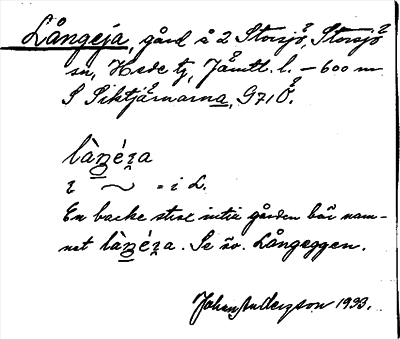 Långeja, gård å 2 Storsjö, Storsjö
sn, Hede tg, Jämtl. l. – 600 m
S Siktjärnarna, G71Ö.
làŋéɪa
ɪ ~ = i L.
En backe strax intill gården bär nam-
net làŋéɪa. Se äv. Långeggen.
Johan Anderzson 1933.